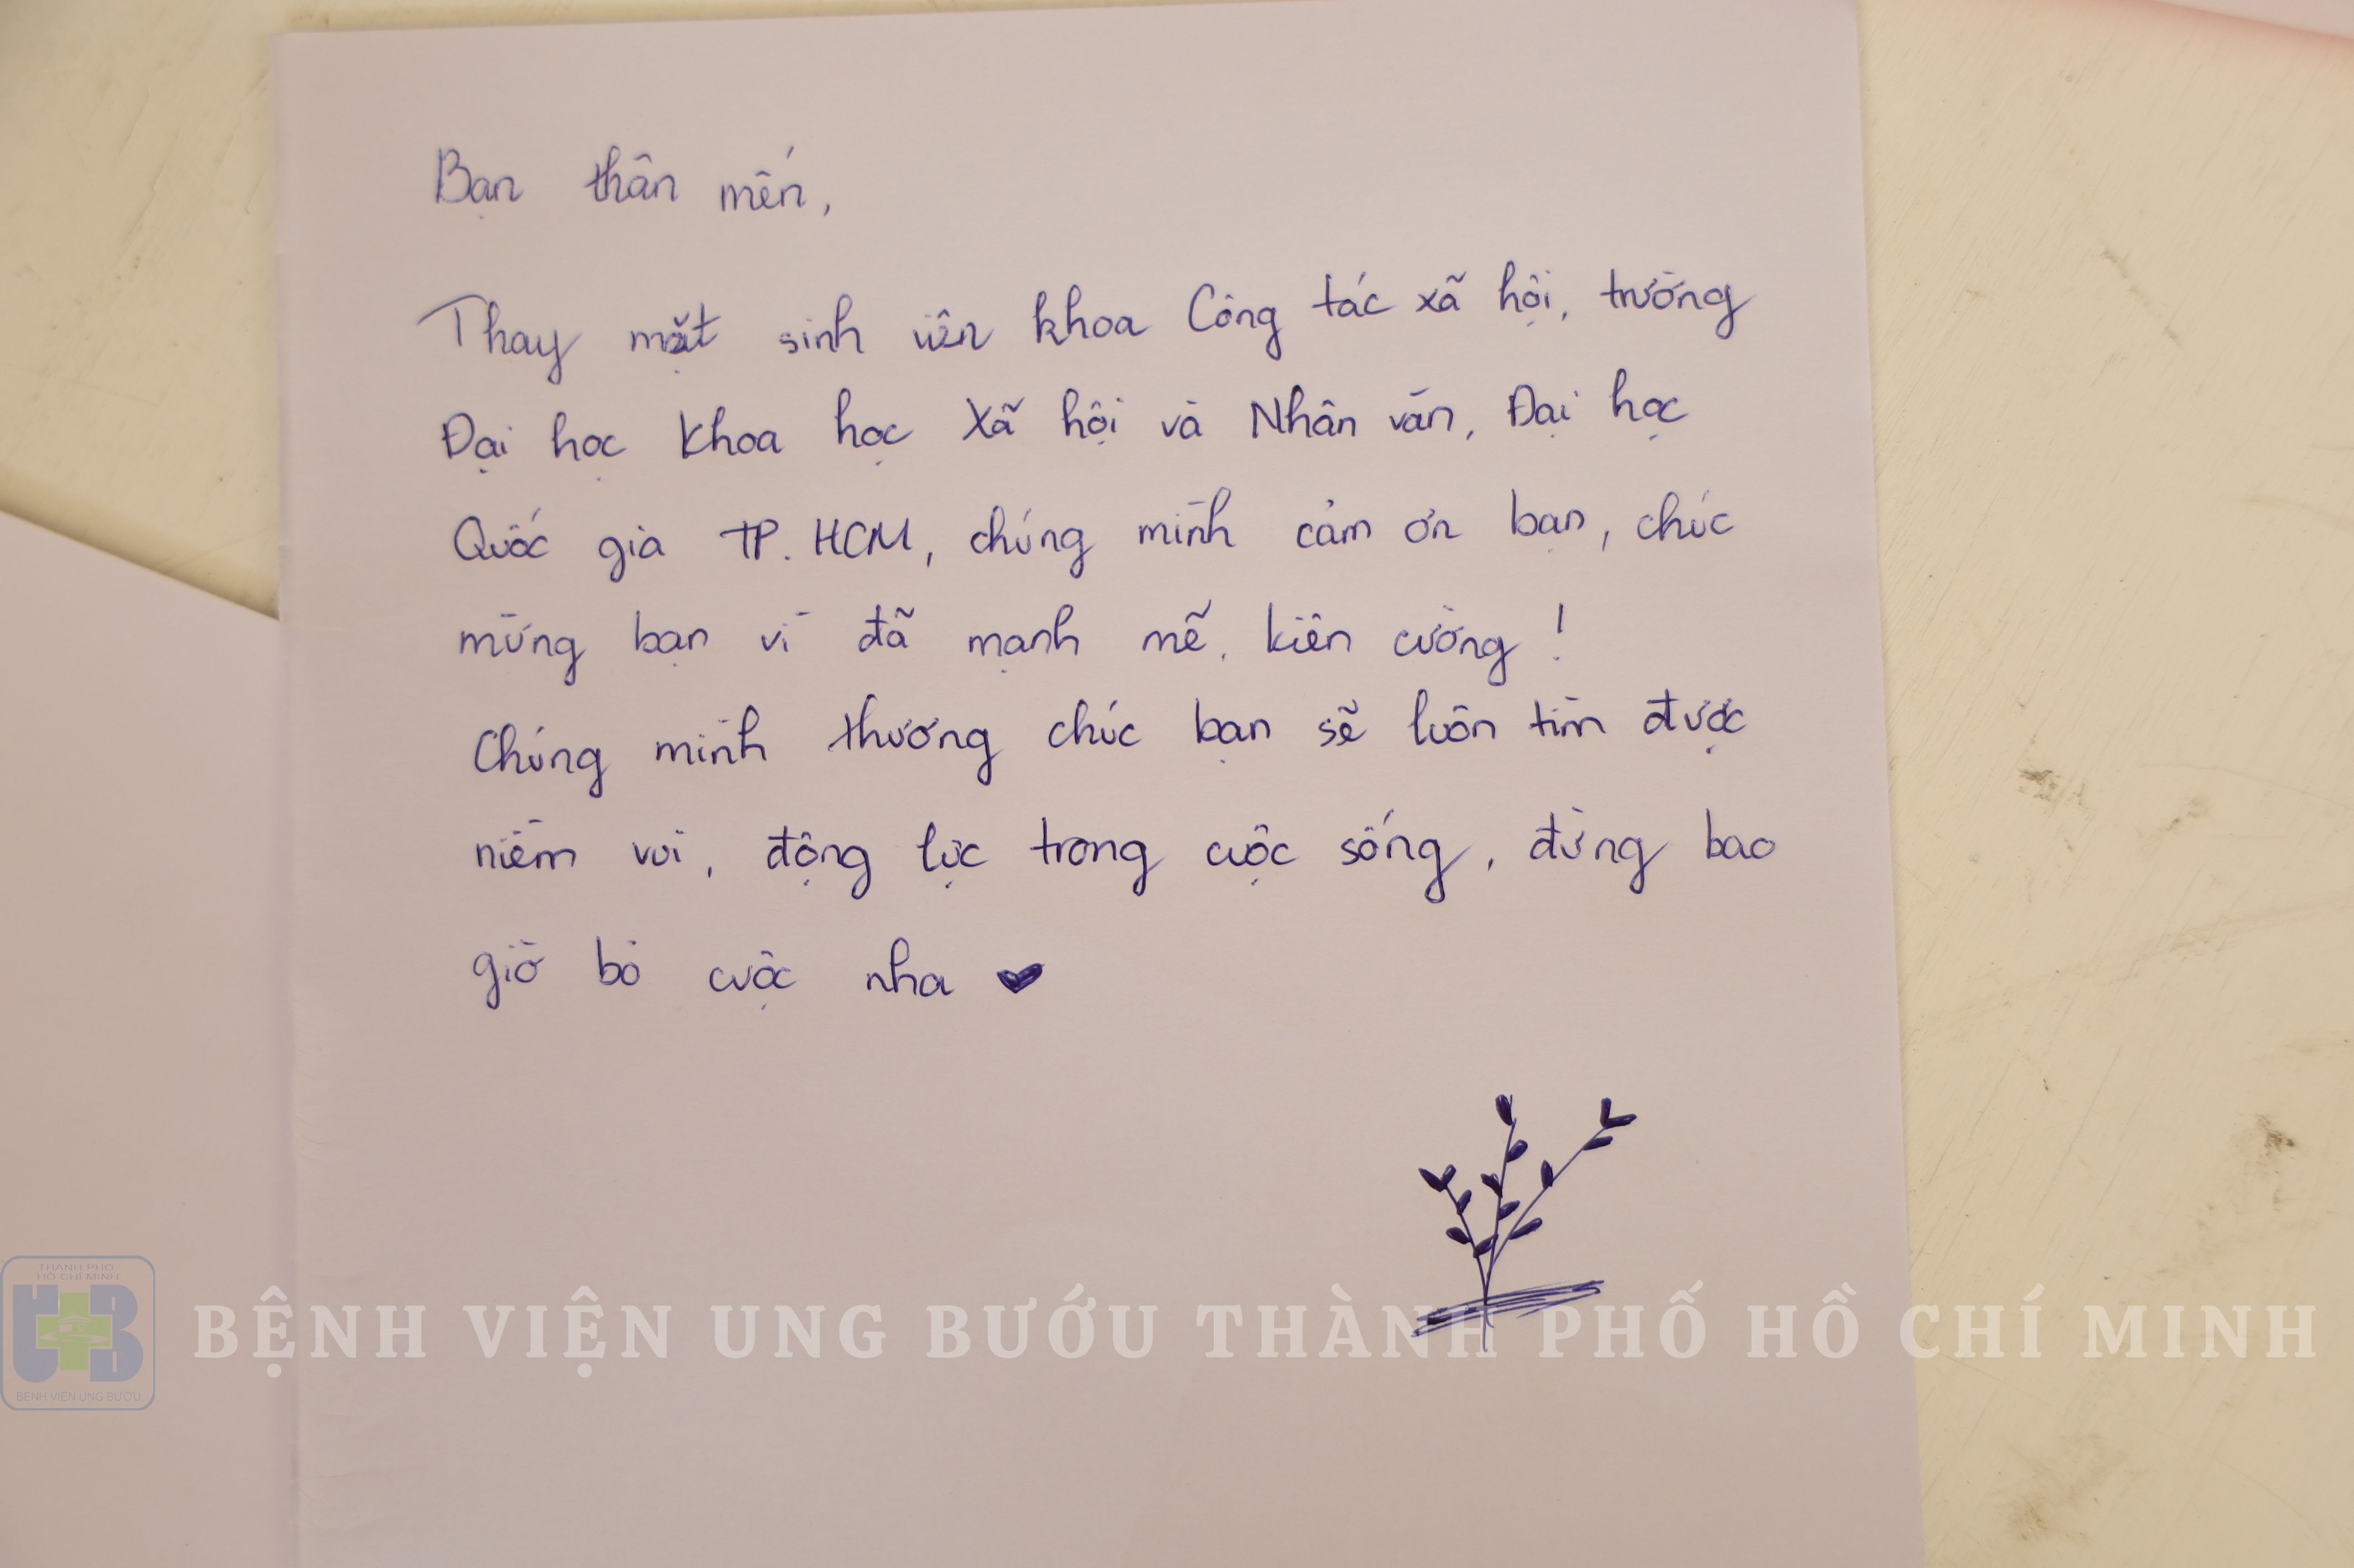 Bạn thân mến,
Thay mặt sinh viên khoa Công tác xã hội, trường
Đại học Khoa học Xã hội và Nhân văn, Đại học
Quốc gia TP. HCM, chúng mình cảm ơn bạn, chúc
mừng bạn vì đã mạnh mẽ, kiên cường!
Chúng mình thương chúc bạn sẽ luôn tìm được
niềm vui, động lực trong cuộc sống, đừng bao
giờ bỏ cuộc nha ♥
THÀNH PHỐ
HỒ CHÍ MINH
UB
BỆNH VIỆN UNG BƯỚU
BỆNH VIỆN UNG BƯỚU THÀNH PHỐ HỒ CHÍ MINH